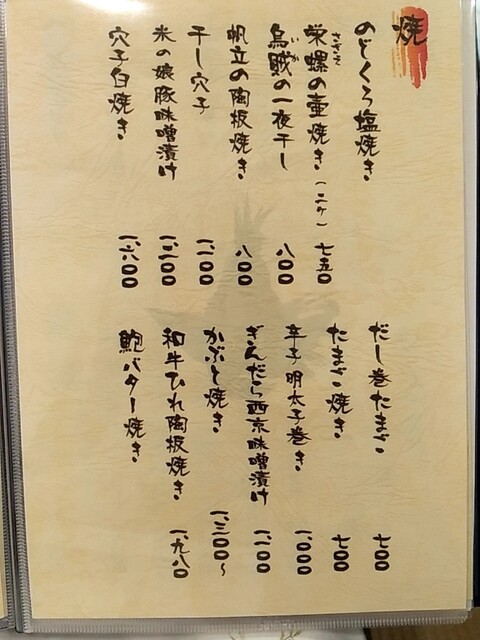 焼
のどくろ塩焼き
栄螺の壷焼き(二ケ) 七五〇
さざえ
烏賊の一夜干し 八〇〇
いか
帆立の陶板焼き 八〇〇
干し穴子 一、二〇〇
米の娘豚味噌漬け 一、二〇〇
穴子白焼き 一、六〇〇
だし巻たまご 七〇〇
たまご焼き 七〇〇
辛子明太子巻き 一、〇〇〇
ぎんだら西京味噌漬け 一、一〇〇
かぶと焼き 一、三〇〇〜
和牛ひれ陶板焼き 一、九八〇
鮑バター焼き